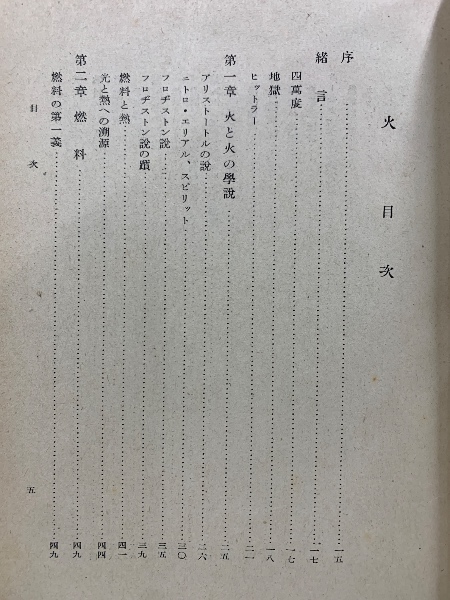 火 目次
序……一五
緒言……一七
四萬度……一七
地獄……一八
ヒットラー……二一
第一章 火と火の學說……二五
アリストートルの說……二六
ニトロ・エリアル、スピリット……三〇
フロヂストン說……三五
フロヂストン說の躓……三九
燃料と熱……四一
光と熱への溯源……四四
第二章 燃料……四九
燃料の第一義……四九
目次
五